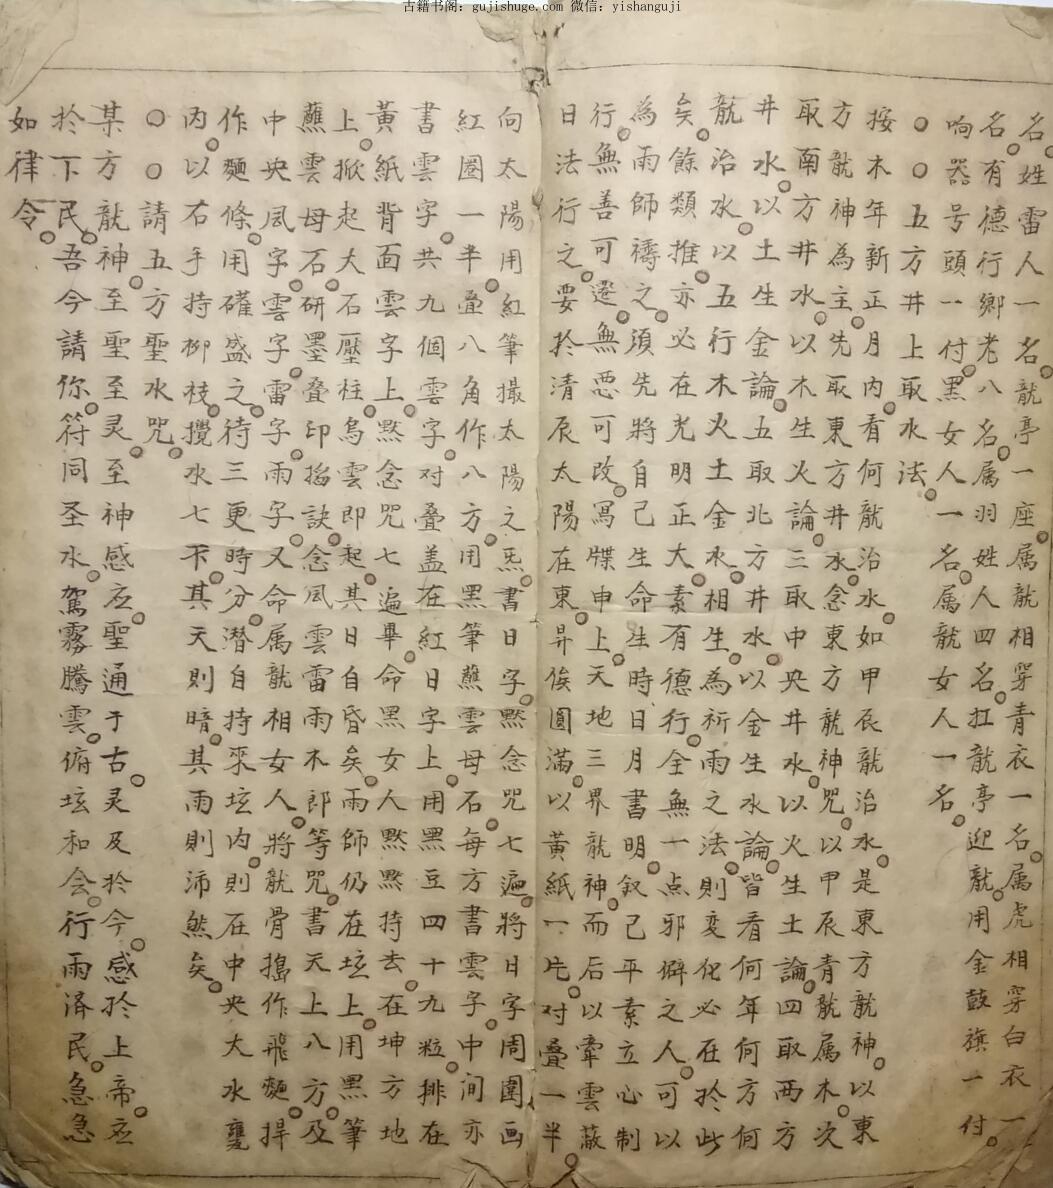 古籍书阁：gujishuge.com 微信：yishanguji
名。姓雷人一名。龍亭一座。属龍相穿青衣一名。属虎相穿白衣一
名。有德行鄉老八名。属羽姓人四名。扛龍亭迎龍。用金鼓旗一付。
响器号頭一付。黑女人一名。属龍女人一名。
○○五方井上取水法。
按木年新正月内。看何龍治水。如甲辰龍治水。是東方龍神。以東
方龍神為主。先取東方井水。念東方龍神咒。以甲辰青龍属木。次
取南方井水。以木生火論。三取中央井水。以火生土論。四取西方
井水。以土生金論。五取北方井水。以金生水論。皆看何年何方何
龍治水。以五行木火土金水。相生。為祈雨之法。則变化必在於此
矣。餘類推。亦必在光明正大。素有德行。全無一点邪僻之人。可以
為雨師禱之。須先將自己生命。生時日月書明。叙己平素立心制
行。無善可遷。無惡可改。寫牒申上。天地三界龍神。而后以牽雲蔽
日法行之。要於清辰太陽在東。昇俟圓滿。以黃紙一片。对叠一半。
向太陽用紅筆撮太陽之炁。書日字。黙念咒七遍。將日字周圍画
紅圈一半。叠八角作八方。用黑筆蘸雲母石。每方書雲字。中间亦
書雲字。共九個雲字。对叠盖在紅日字上。用黑豆四十九粒。排在
黃紙背面雲字上。黙念咒七遍畢。命黑女人黙黙持去。在坤方地
上。掀起大石壓柱。烏雲即起。其日自昏矣。雨師仍在坛上。用黑筆
蘸雲母石。研墨叠印。掐訣。念風雲雷雨木郎等咒。書天上八方。及
中央風字。雲字。雷字。雨字。又命属龍相女人。將龍骨搗作飛麵。捍
作麵條。用䃥盛之。待三更時分。潜自持來坛内。則在中央大水甕
内。以右手持柳枝。攪水七下。其天則暗。其雨則沛然矣。
○○請五方聖水咒。
某方龍神。至聖至灵至神感应。聖通于古。灵及於今。感於上帝。应
於下民。吾今請你。符同圣水。駕霧騰雲。俯坛和会。行雨济民。急急
如律令。